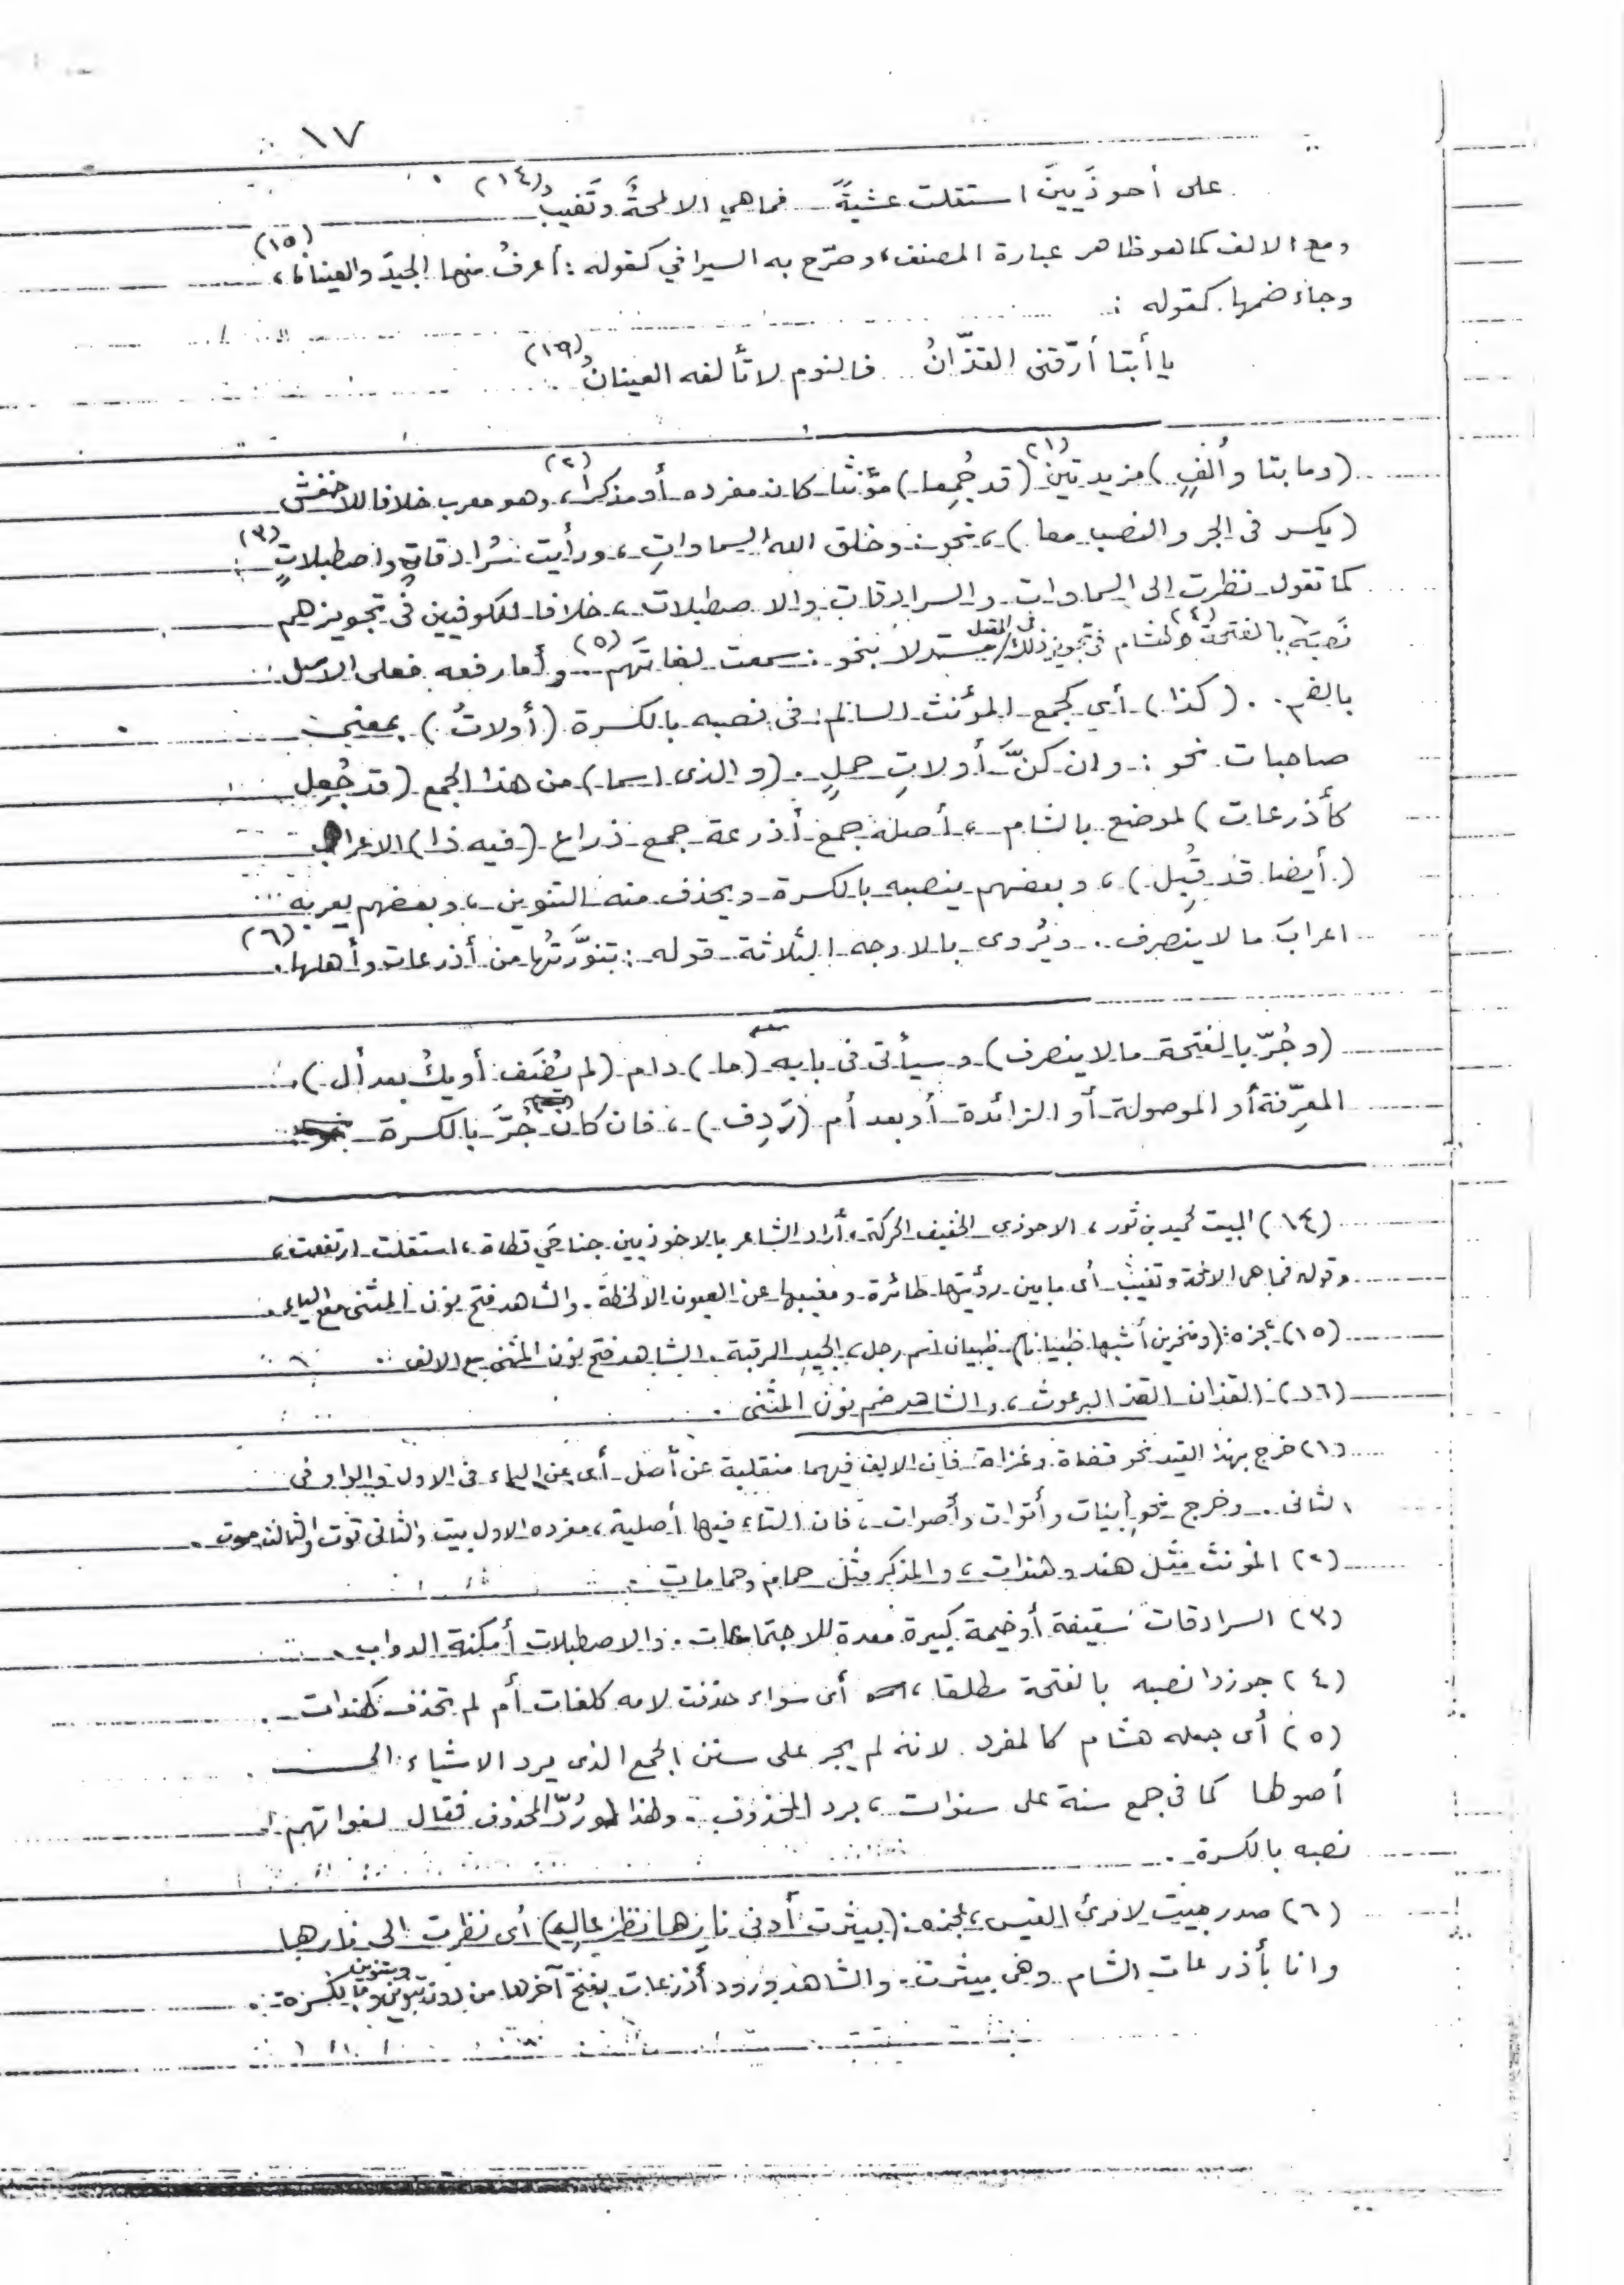 ١٧
على أحوذَيينَ استقلت عشيةً فما هي الا لمحةٌ وتَغيبُ (١٤)
ومع الالف كما هو ظاهر عبارة المصنف، وصرّح به السيرافي كقوله : أعرفُ منها الجيدَ والعينانا، (١٥)
وجاء ضمها كقوله :
يا أبتا أرّقني القذّانُ فالنوم لا تألفه العينانُ (١٦)
(وما بتا وألفٍ) مزيدتين (١) (قد جُمِعا) مؤنثا كان مفرده أو مذكرا، (٢) وهو معرب خلافا للاخفش
(يكسر في الجر والنصب معا)، نحو وخلق الله السماواتِ، ورأيت سُرادقاتٍ واصطبلاتٍ (٣) :
كما تقول نظرت الى السماوات والسرادقات والاصطبلات، خلافا للكوفيين في تجويزهم
نَصبَه بالفتحة (٤) ولهشام في تجويز ذلك في المعتل مستدلا بنحو : سمعت لغاتَهم (٥) وأما رفعه فعلى الاصل
بالضم . (كذا) أي كجمع المؤنث السالم في نصبه بالكسرة (أولاتُ) بمعنى
صاحبات نحو : وان كنَّ أولاتِ حملٍ . (والذي اسما) من هذا الجمع (قد جُعِل
كأذرعات) لموضع بالشام، أصله جمع أذرعة جمع ذراع (فيه ذا) الاعراب
(أيضا قد قُبِل)، وبعضهم ينصبه بالكسرة ويحذف منه التنوين، وبعضهم يعربه
اعرابَ ما لا ينصرف .. ويُروى بالاوجه الثلاثة قوله : تنوَّرتُها من أذرعات وأهلها . (٦)
(وجُرّ بالفتحة ما لا ينصرف) وسيأتي في بابه (ما) دام (لم يُضَف أو يكُ بعد أل)
المعرِّفة أو الموصولة أو الزائدة أو بعد أم (رَدِف)، فان كان جُرَّ بالكسرة
(١٤) البيت لحميد بن ثور، الاحوذي الخفيف الحركة، أراد الشاعر بالاحوذيين جناحَي قطاة، استقلت ارتفعت،
وقوله فما هي الا لمحة وتغيب أي ما بين رؤيتها طائرة ومغيبها عن العيون الا لحظة . والشاهد فتح نون المثنى مع الياء .
(١٥) عجزه : (ومنخرين أشبها ظبيانا) ظبيان اسم رجل، الجيد الرقبة . الشاهد فتح نون المثنى مع الالف
(١٦) القذان القذ البرغوث، والشاهد ضم نون المثنى .
(١) خرج بهذا القيد نحو قضاة وغزاة فان الالف فيهما منقلبة عن أصل أي عن الياء في الاول والواو في
الثاني . وخرج نحو أبيات وأقوات وأصوات، فان التاء فيها أصلية، مفرده الاول بيت والثاني قوت والثالث صوت .
(٢) المؤنث مثل هند وهندات، والمذكر مثل حمام وحمامات .
(٣) السرادقات سقيفة أو خيمة كبيرة معدة للاجتماعات . والاصطبلات أمكنة الدواب .
(٤) جوزوا نصبه بالفتحة مطلقا، أي سواء حذفت لامه كلغات أم لم تحذف كهندات .
(٥) أي جعله هشام كالمفرد لانه لم يجر على سنن الجمع الذي يرد الاشياء الى
أصولها كما في جمع سنة على سنوات، برد المحذوف . ولهذا لو رُدّ المحذوف فقال لغواتهم
نصبه بالكسرة .
(٦) صدر بيت لامرئ القيس، عجزه : (بيثرب أدنى دارها نظر عالي) أي نظرت الى نارها
وانا بأذرعات الشام وهي بيثرب . والشاهد ورود أذرعات بفتح آخرها من بدون تنوين وبالكسرة وبتنوين .